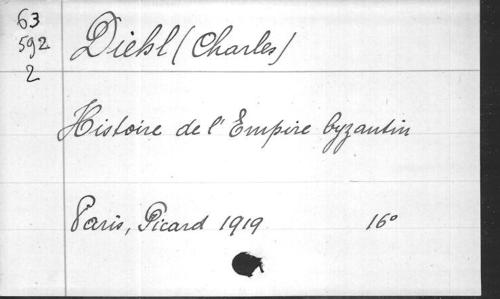 63
592
2
Diehl (Charles)
Histoire de l' Empire byzantin
Paris, Picard 1919 16°